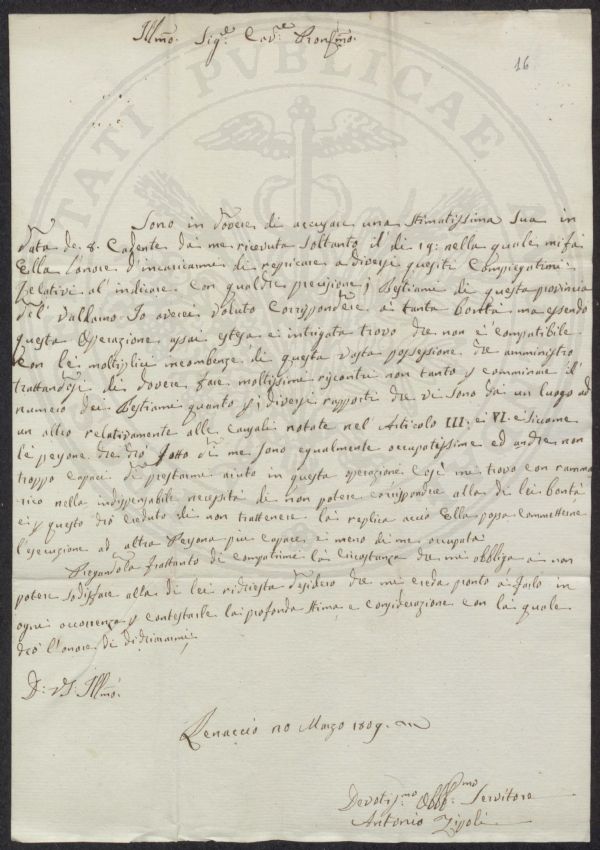 Illmo. Sige. Cave. Pronmo.
16
TATI PVBLICAE
Sono in dovere di accusare una Stimatissima Sua in
data de 8. Cadente da me ricevuta soltanto il di 19: nella quale mi fà
Ella l'onore d'incaricarmi di replicare a diversi quesiti
relativi al' indicare con qualche precisione i Bestiami di questa provincia
del' Valdarno. Io averei voluto Corrispondere à tanta bontà ma essendo
questa Operazione assai estesa e intrigata trovo che non e' compatibile
con lei moltiplici incombenze di questa vasta possessione che amministro
trattandosi di dovere fare moltissimi riscontri non tanto p comminare il'
numero dei Bestiami quanto p i diversi rapporti che vi sono da un luogo ad
un altro relativamente alle Causali notate nel' Articolo III: e' VI. e' Siccome
le' persone che diò sotto di me sono egualmente occupatissime ed anche non
troppo capaci di prestarmi aiuto in questa operazione così mi trovo con ramma
rico nella indispensabile necessità di non potere corrispondere alla di lei bontà
e' p questo diò creduto di non trattenere là replica acciò Ella possa commetterne
l'esecuzione ad altra Persona piu capace e meno di me occupata
Pregandola frattanto di compatirmi là circostanza che mi obbliga à non
potere sodisfare alla di lei richiesta desidero che mi creda pronto à farlo in
ogni occorrenza p contestarle la profonda stima e considerazione con là quale
diò l'onore di dichiararmi
D: VS. Illmo.
Renaccio 20 Marzo 1809.
Devotismo Obbmo. Servitore
Antonio Zipoli